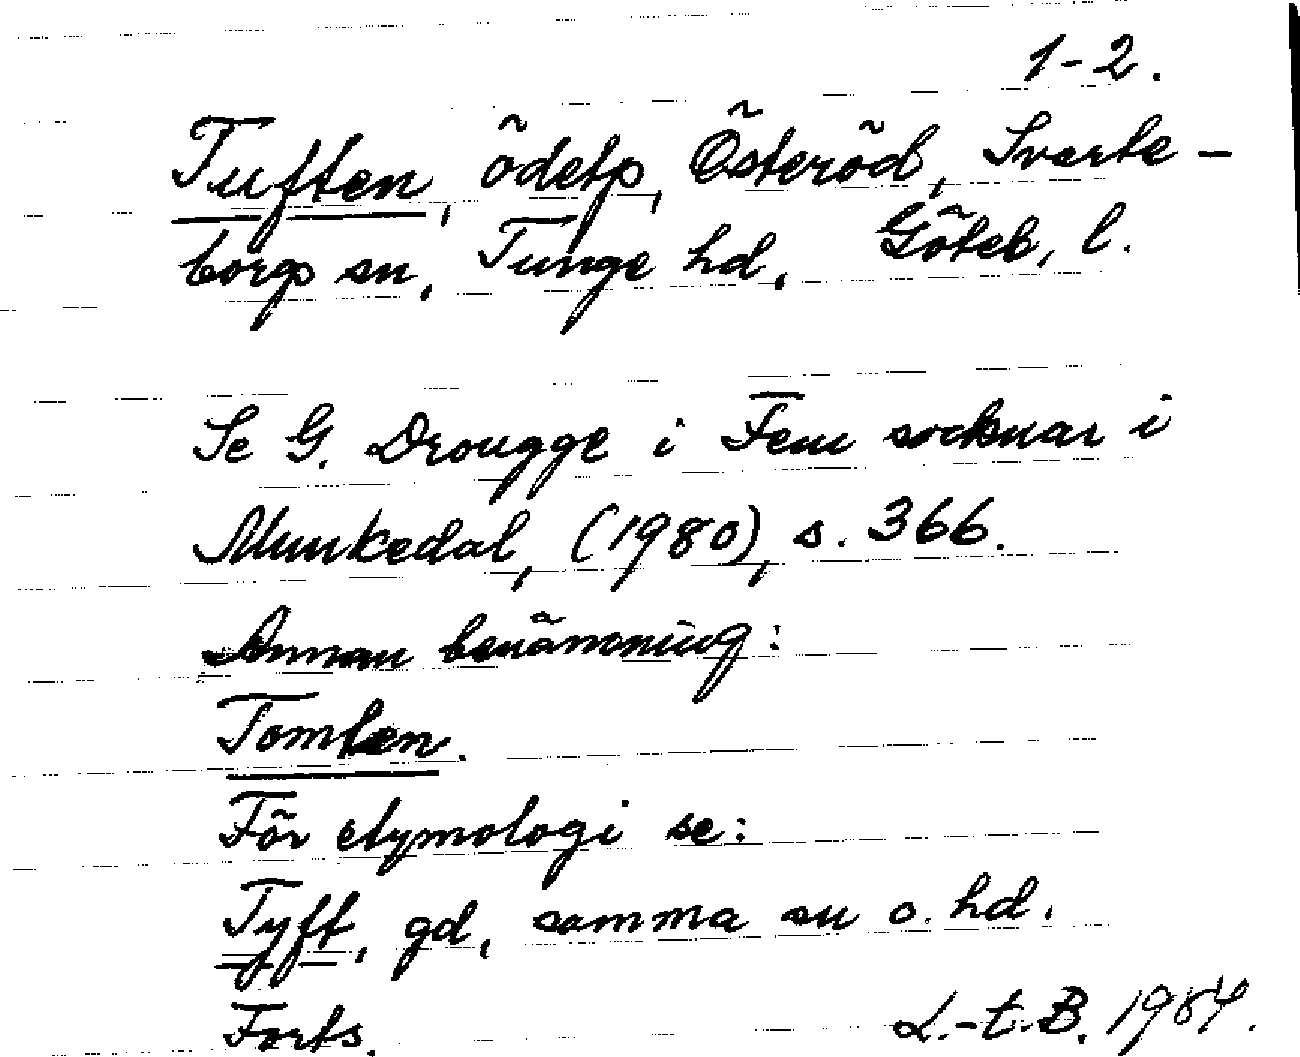 1-2.
Tuften, ödetp, Österöd, Svarte-
borgs sn, Tunge hd, Göteb. l.
Se G. Drougge i Fem socknar i
Munkedal, (1980), s. 366.
Annan benämning:
Tomten.
För etymologi se:
Tyft, gd, samma sn o. hd.
Forts. L.-t. B. 1984.